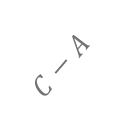 C – A